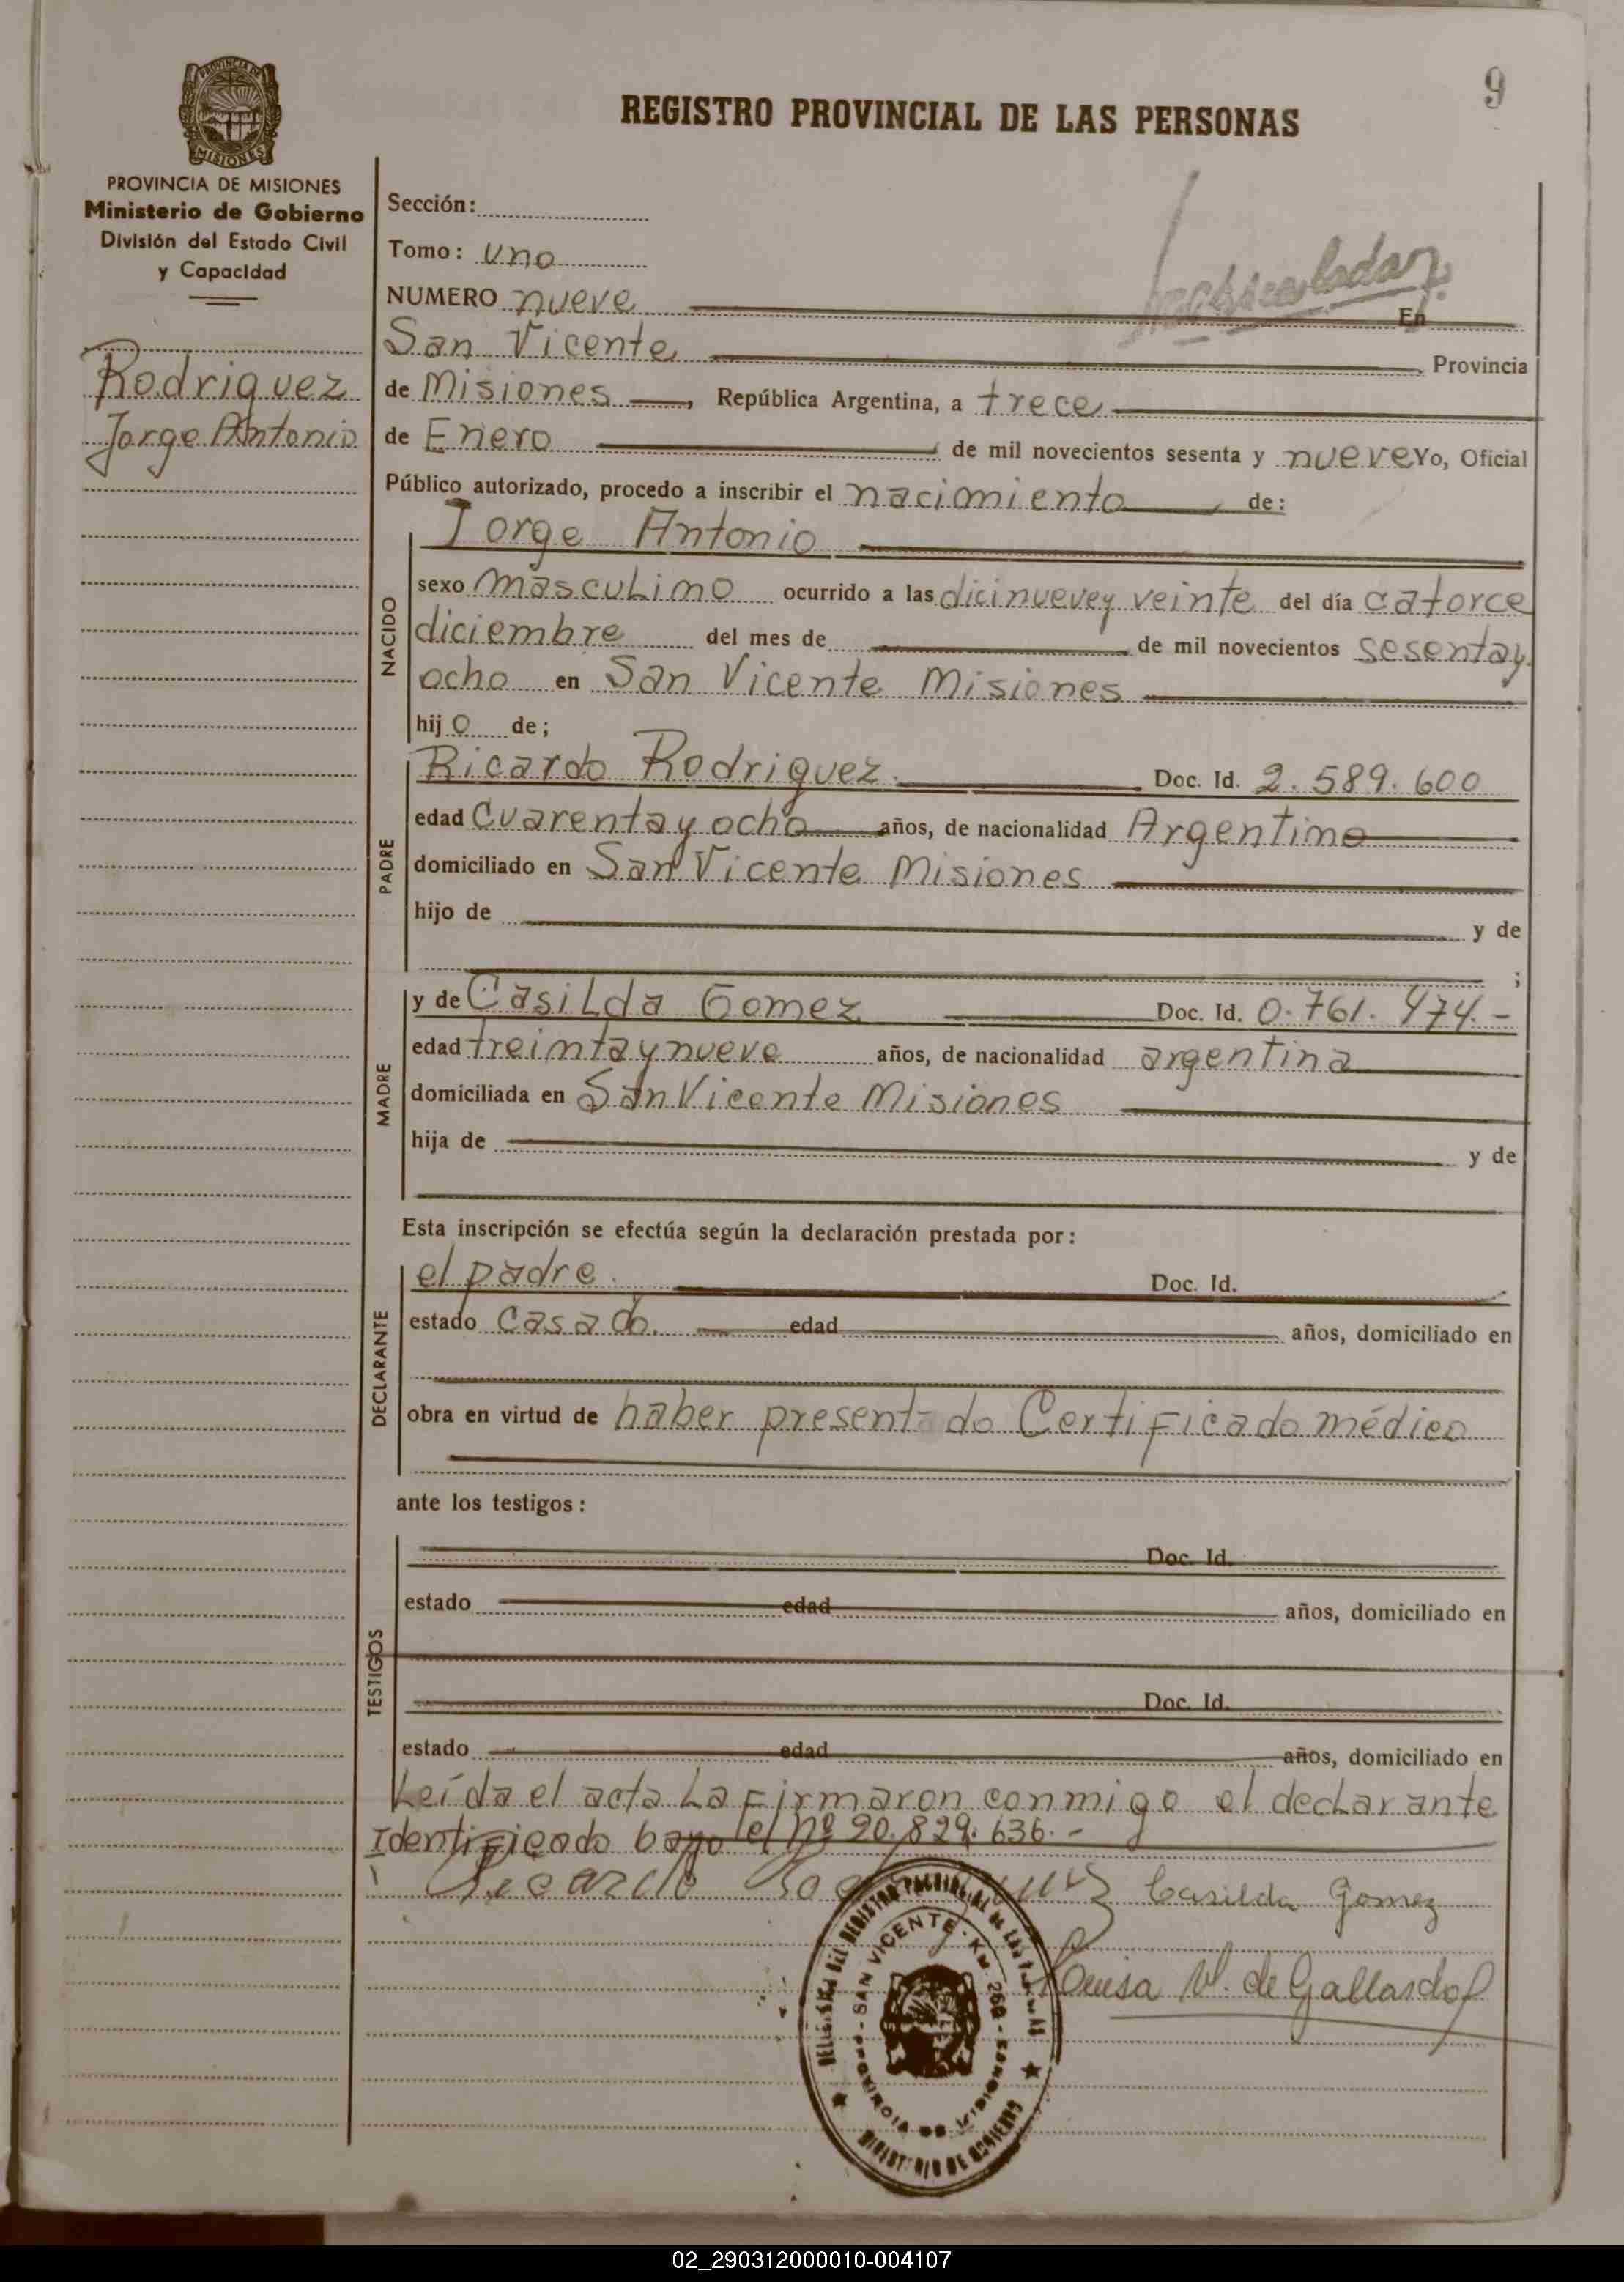 9
REGISTRO PROVINCIAL DE LAS PERSONAS
PROVINCIA DE MISIONES
Ministerio de Gobierno
División del Estado Civil
y Capacidad
Rodriguez
Jorge Antonio
Sección:
Tomo: uno
NUMERO nueve En
San Vicente Provincia
de Misiones, República Argentina, a trece
de Enero de mil novecientos sesenta y nueve Yo, Oficial
Público autorizado, procedo a inscribir el nacimiento de:
Jorge Antonio
NACIDO
sexo masculino ocurrido a las dicinueve y veinte del día catorce
diciembre del mes de de mil novecientos sesenta y
ocho en San Vicente Misiones
hijo de;
PADRE
Ricardo Rodriguez Doc. Id. 2.589.600
edad cuarenta y ocho años, de nacionalidad Argentino
domiciliado en San Vicente Misiones
hijo de y de
;
MADRE
y de Casilda Gomez Doc. Id. 0.761.474.-
edad treinta y nueve años, de nacionalidad argentina
domiciliada en San Vicente Misiones
hija de y de
Esta inscripción se efectúa según la declaración prestada por:
DECLARANTE
el padre. Doc. Id.
estado casado. edad años, domiciliado en
obra en virtud de haber presentado Certificado médico
ante los testigos:
TESTIGOS
Doc. Id.
estado edad años, domiciliado en
Doc. Id.
estado edad años, domiciliado en
Leída el acta la firmaron conmigo el declarante
Identificado bajo el Nº 20.829.636.-
Ricardo Rodriguez Casilda Gomez
Luisa V. de Gallardo
SAN VICENTE - KM. 260
PROVINCIA DE MISIONES
MINISTERIO DE GOBIERNO
02_290312000010-004107